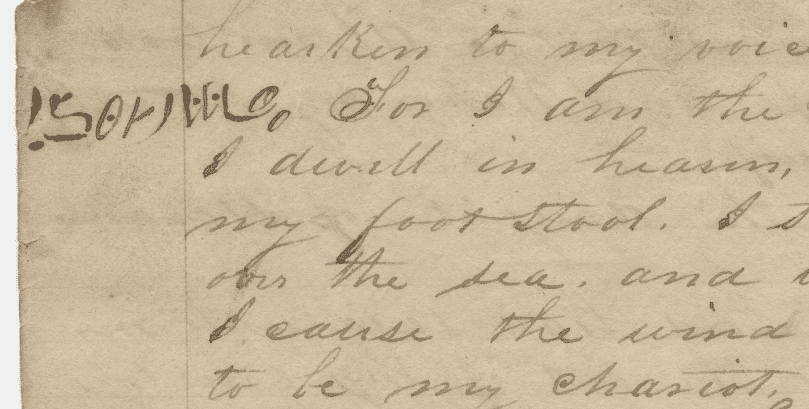 hearken to my voice
For I am the
I dwell in heaven,
my footstool. I s
over the sea. and
I cause the wind
to be my chariot.